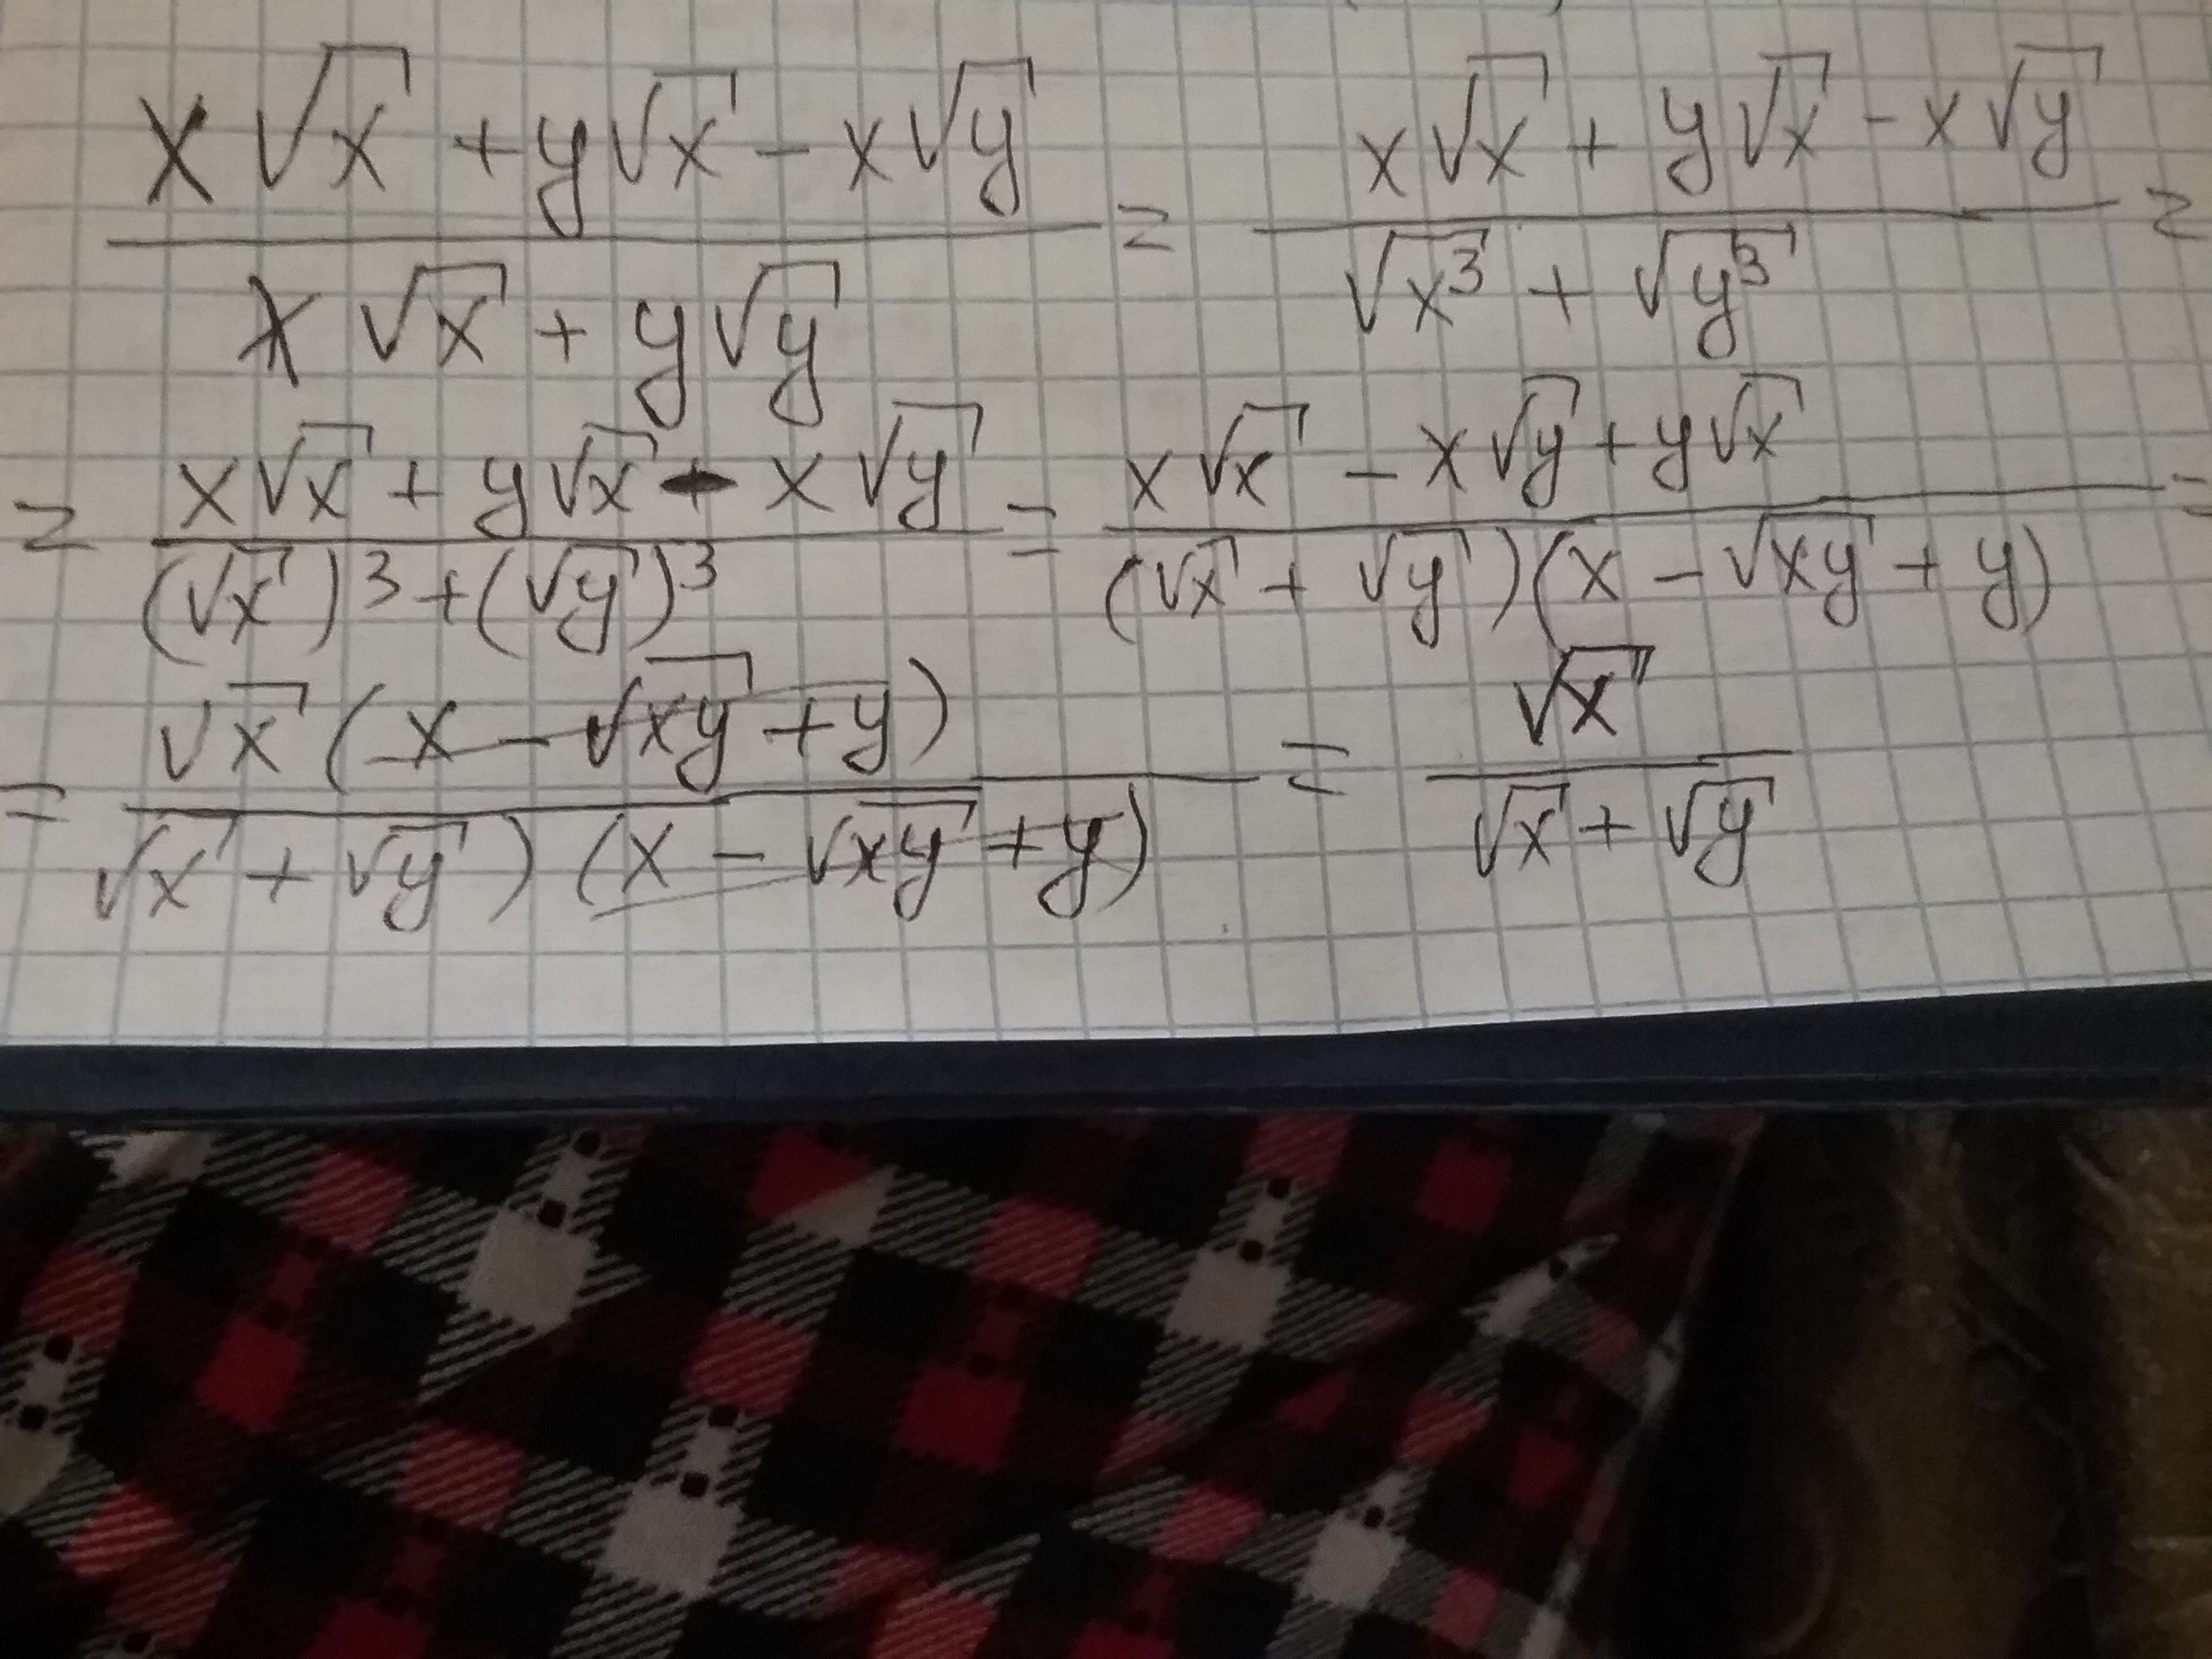 (x√x + y√x − x√y)/(x√x + y√y) = (x√x + y√x − x√y)/(√x³ + √y³) =
= (x√x + y√x − x√y)/((√x)³ + (√y)³) = (x√x − x√y + y√x)/((√x + √y)(x − √xy + y)) =
= √x(x − √xy + y)/(√x + √y)(x − √xy + y) = √x/(√x + √y)